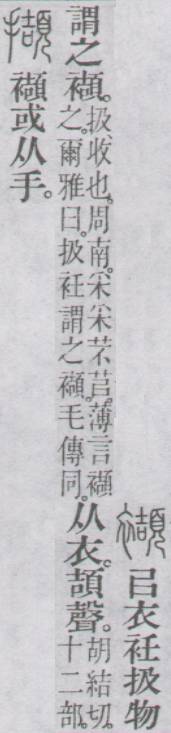 襭 㠯衣衽扱物
謂之襭。扱、收也。周南。采采芣苢。薄言襭之。爾雅曰。扱衽謂之襭。毛傳同。从衣。頡聲。胡結切。十二部。
擷 襭或从手。